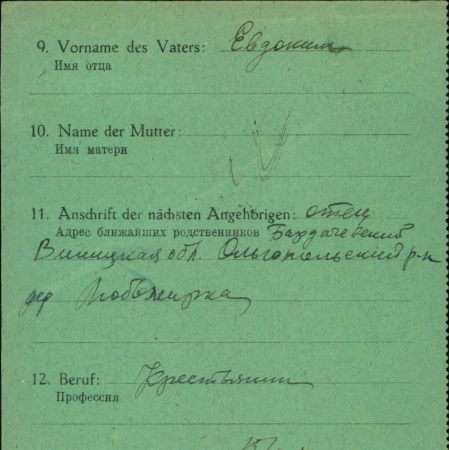 9. Vorname des Vaters: Евдоким
Имя отца
10. Name der Mutter:
Имя матери
11. Anschrift der nächsten Angehörigen: отец
Адрес ближайших родственников
Виницкая обл. Ольгопольский р-н
дер
12. Beruf: Крестьянин
Профессия